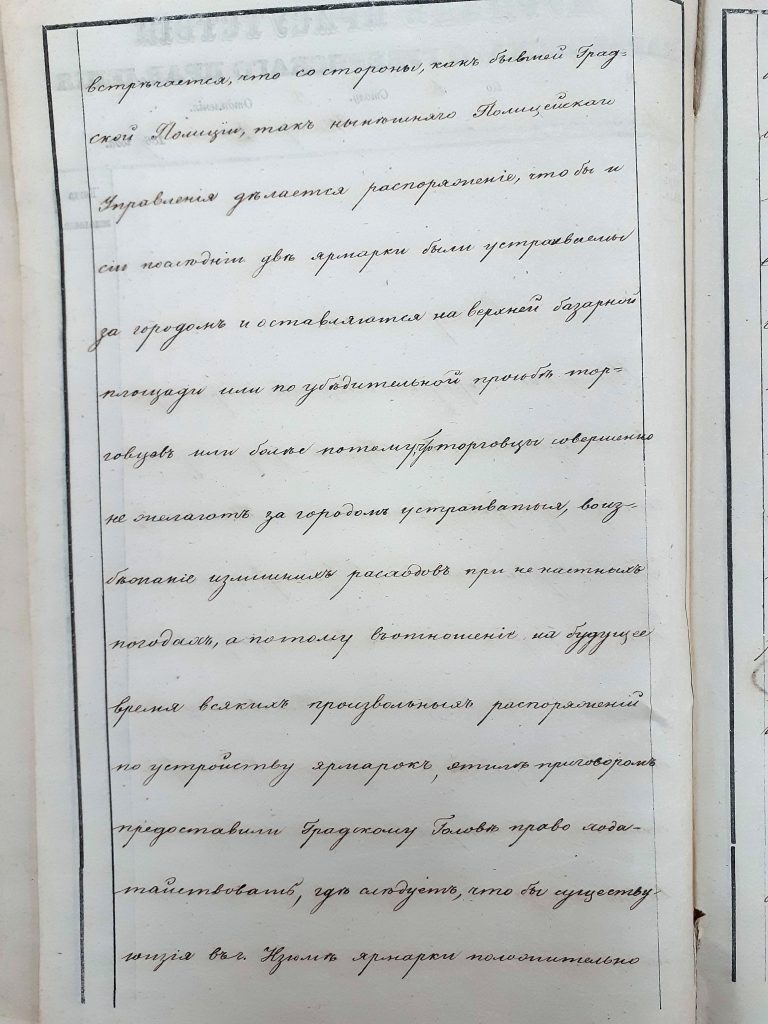 встрѣчается, что со стороны, какъ бывшей Град-
ской Полиціи, такъ нынѣшняго Полицейскаго
Управленія дѣлается распоряженіе, что бы и
сіи послѣдніи двѣ ярмарки были устраиваемы
за городомъ и оставляются на верхней базарной
площади или по убѣдительной прозьбѣ тор-
говцовъ или болѣе потому, что торговцы совершенно
не желаютъ за городомъ устраиваться, во из-
бѣжаніе излишнихъ расходовъ при не настныхъ
погодахъ, а потому въ отношеніе на будущее
время всякихъ произвольныхъ распоряженій
по устройству ярмарокъ, этимъ приговоромъ
предоставили Градскому Головѣ право хода-
тайствовать, гдѣ слѣдуетъ, что бы существу-
ющія въ г. Изюмѣ ярмарки положительно